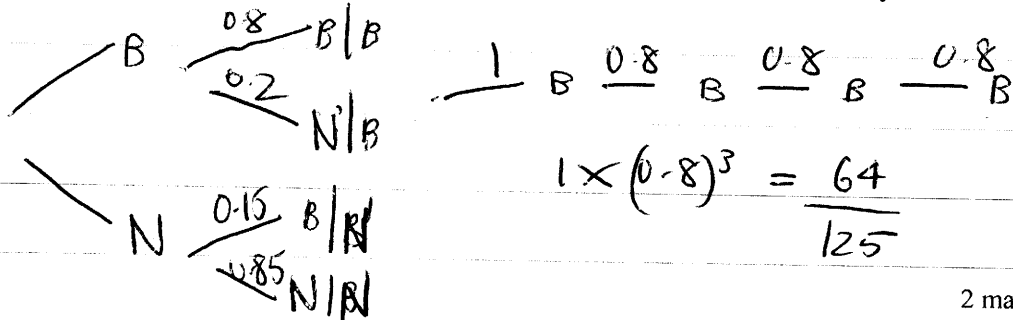 B 0.8 B|B
0.2 N|B
N 0.15 B|N
0.85 N|N
1 B 0.8 B 0.8 B 0.8 B
1 × (0.8)³ = 64
125
2 ma